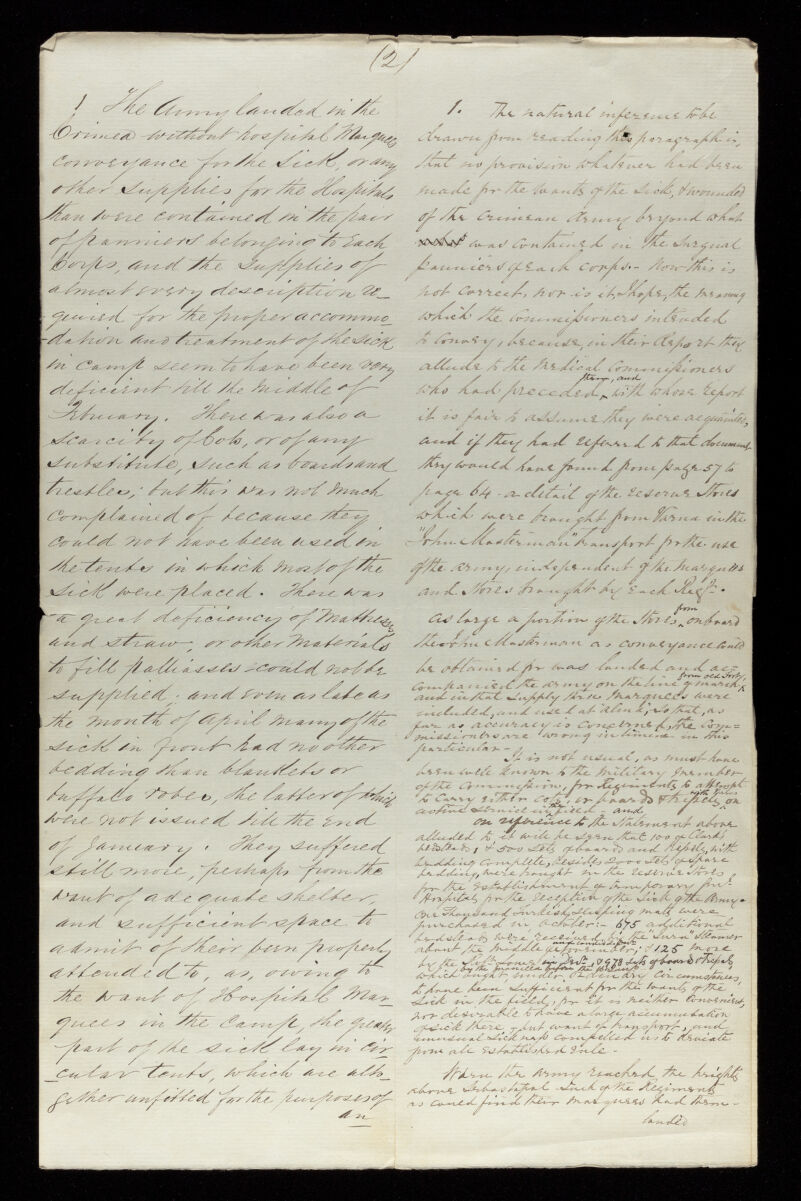 (2)
1 The Army landed in the
Crimea without hospital Marquees
conveyance for the Sick, or any
other Supplies for the Hospitals
than were contained in the pair
of panniers belonging to Each
Corps, and the Supplies of
almost every description re-
quired for the proper accommo-
-dation and treatment of the sick
in camp seem to have been very
deficient till the Middle of
February. There was also a
scarcity of Cots, or of any
substitute, such as boards and
trestles; but this was not much
complained of because they
could not have been used in
the tents in which most of the
sick were placed. There was
a great deficiency of Mattresses
and straw, or other Materials
to fill palliasses could not be
supplied; and even as late as
the month of April many of the
sick in front had no other
bedding than blankets or
buffalo robes, the latter of which
were not issued till the End
of January. They suffered
still more, perhaps from the
want of adequate shelter,
and sufficient space to
admit of their been properly
attended to, as, owing to
the want of Hospital Mar-
quees in the Camp, the greater
part of the sick lay in cir
-cular tents, which are alto-
gether unfitted for the purposes of
an
1. The natural inference to be
drawn from reading this paragraph is,
that no provision whatever had been
made for the wants of the Sick, & wounded
of the Crimean Army beyond what
was contained in the Surgual
panniers of each corps. Now this is
not correct, nor is it, I hope, the meaning
which the Commissioners intended
to convey, because, in their Report they
allude to the Medical Commissioners
who had preceded them, and with whose report
it is fair to assume they were acquainted,
and if they had referred to that document
they would have found from page 57 to
page 64 a detail of the reserve Stores
which were brought from Varna in the
"John Masterman" transport for the use
of the army, independent of the Marquees
and Stores brought by Each Regt.
As large a portion of the Stores from on board
the John Masterman as conveyance could
be obtained for was landed and ac-
companied the army on the line of march from old Fort,
and in that supply three Marquees were
included, and used at Alma; so that, as
far as accuracy is concerned, the Com-
missioners are wrong in limine in this
particular.
It is not usual, as must have
been well known to the Military member
of the Commission, for Regiments to attempt
to carry either cots, or boards & trestles, on
active service and
on reference to the Statement above
alluded to, it will be seen that 100 of Clark's
bedsteads, & 500 sets of boards and trestles, with
bedding complete, besides 2000 sets of spare
bedding, were brought in the reserve Stores
for the Establishment of temporary
Hospitals, for the reception of the Sick of the Army.
One Thousand Turkish Sleeping mats were
purchased in October: 675 additional
bedsteads were received by the Steamer
about the middle of November; & 125 more
by the in Decr., & 978 sets of boards & trestles
which ought under ordinary circumstances,
to have been sufficient for the wants of the
Sick in the field, for it is neither convenient,
nor desirable to have a large accumulation
of sick there, but want of transport, and
unusual sickness compelled us to deviate
from all Established rule.
When the Army reached the heights
above Sebastopol such of the Regiments
as could find their marquees had them
landed